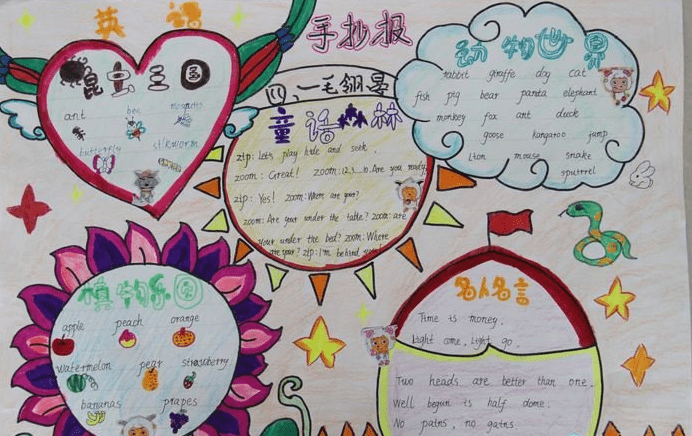 英语
手抄报
昆虫王国
ant bee mosquito
butterfly silkworm
童话森林
zip: Let's play hide and seek.
zoom: Great! zoom: 1.2.3....10. Are you ready
zip: Yes! zoom: Where are you?
zoom: Are your under the table? zoom: are
your under the bed? zoom: Where
are your? zip: I'm behind
动物世界
rabbit giraffe dog cat
fish pig bear panta elephant
monkey fox ant duck
goose kangaroo jump
Lion mouse snake
植物乐园
apple peach orange
watermelon pear strawberry
bananas grapes
名人名言
Time is money.
Light come, Light go.
Two heads are better than one.
Well begun is half dome.
No pains, no gains